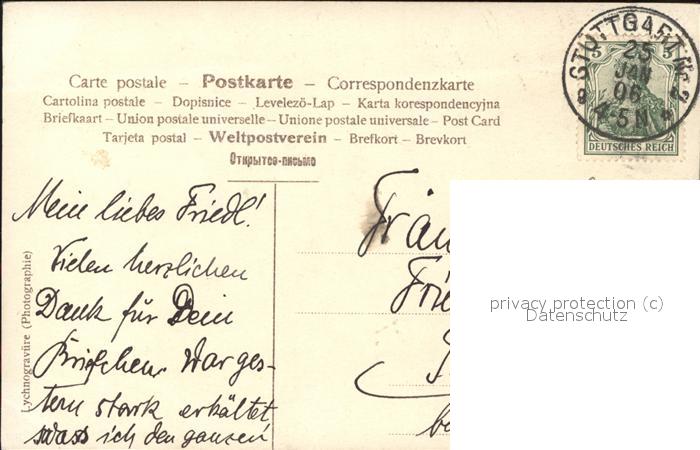 Carte postale – Postkarte – Correspondenzkarte
Cartolina postale – Dopisnice – Levelező-Lap – Karta korespondencyjna
Briefkaart – Union postale universelle – Unione postale universale – Post Card
Tarjeta postal – Weltpostverein – Brefkort – Brevkort
Открытое-письмо
STUTTGART Nr. 2
25
JAN
06
4-5 N
5 5
DEUTSCHES REICH
Mein liebes Friedl!
Vielen herzlichen
Dank für Dein
Briefchen. War ges-
tern stark erkältet
sodass ich den ganzen
Lychnogravüre (Photographie)
Fräu
Frie
privacy protection (c)
Datenschutz